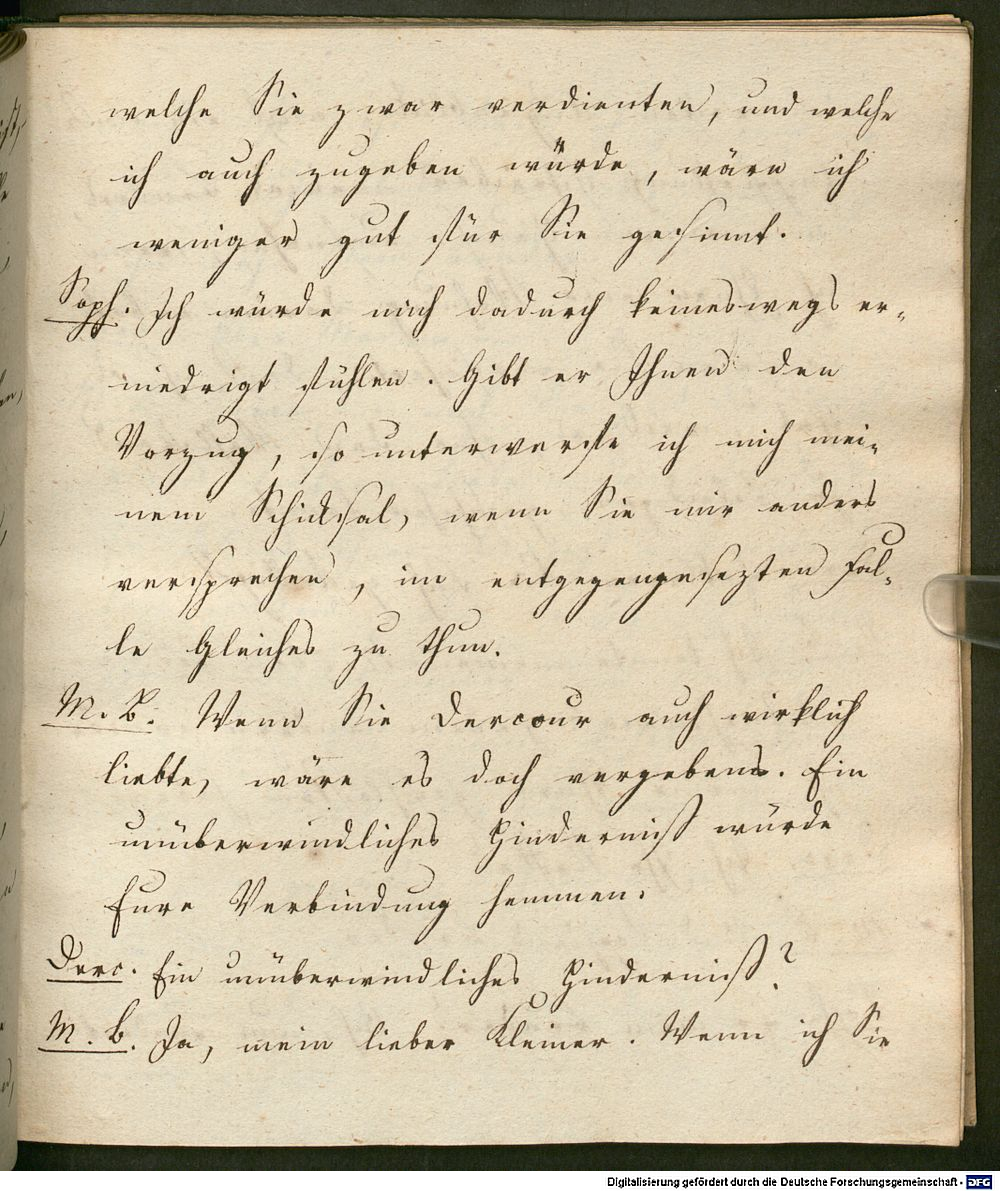 welche Sie zwar verdienten, und welche
ich auch zugeben würde, wäre ich
weniger gut für Sie gesinnt.
Soph. Ich würde mich dadurch keineswegs er-
niedrigt fühlen. Gibt er Ihnen den
Vorzug, so unterwerfe ich mich mei-
nem Schicksal, wenn Sie mir anders
versprechen, im entgegengesezten Fal-
le Gleiches zu thun.
M. B. Wenn Sie Dercour auch wirklich
liebte, wäre es doch vergebens. Ein
unüberwindliches Hinderniß würde
Eure Verbindung hemmen.
Derc. Ein unüberwindliches Hinderniß?
M. B. Ja, mein lieber Kleiner. Wenn ich Sie
Digitalisierung gefördert durch die Deutsche Forschungsgemeinschaft - DFG